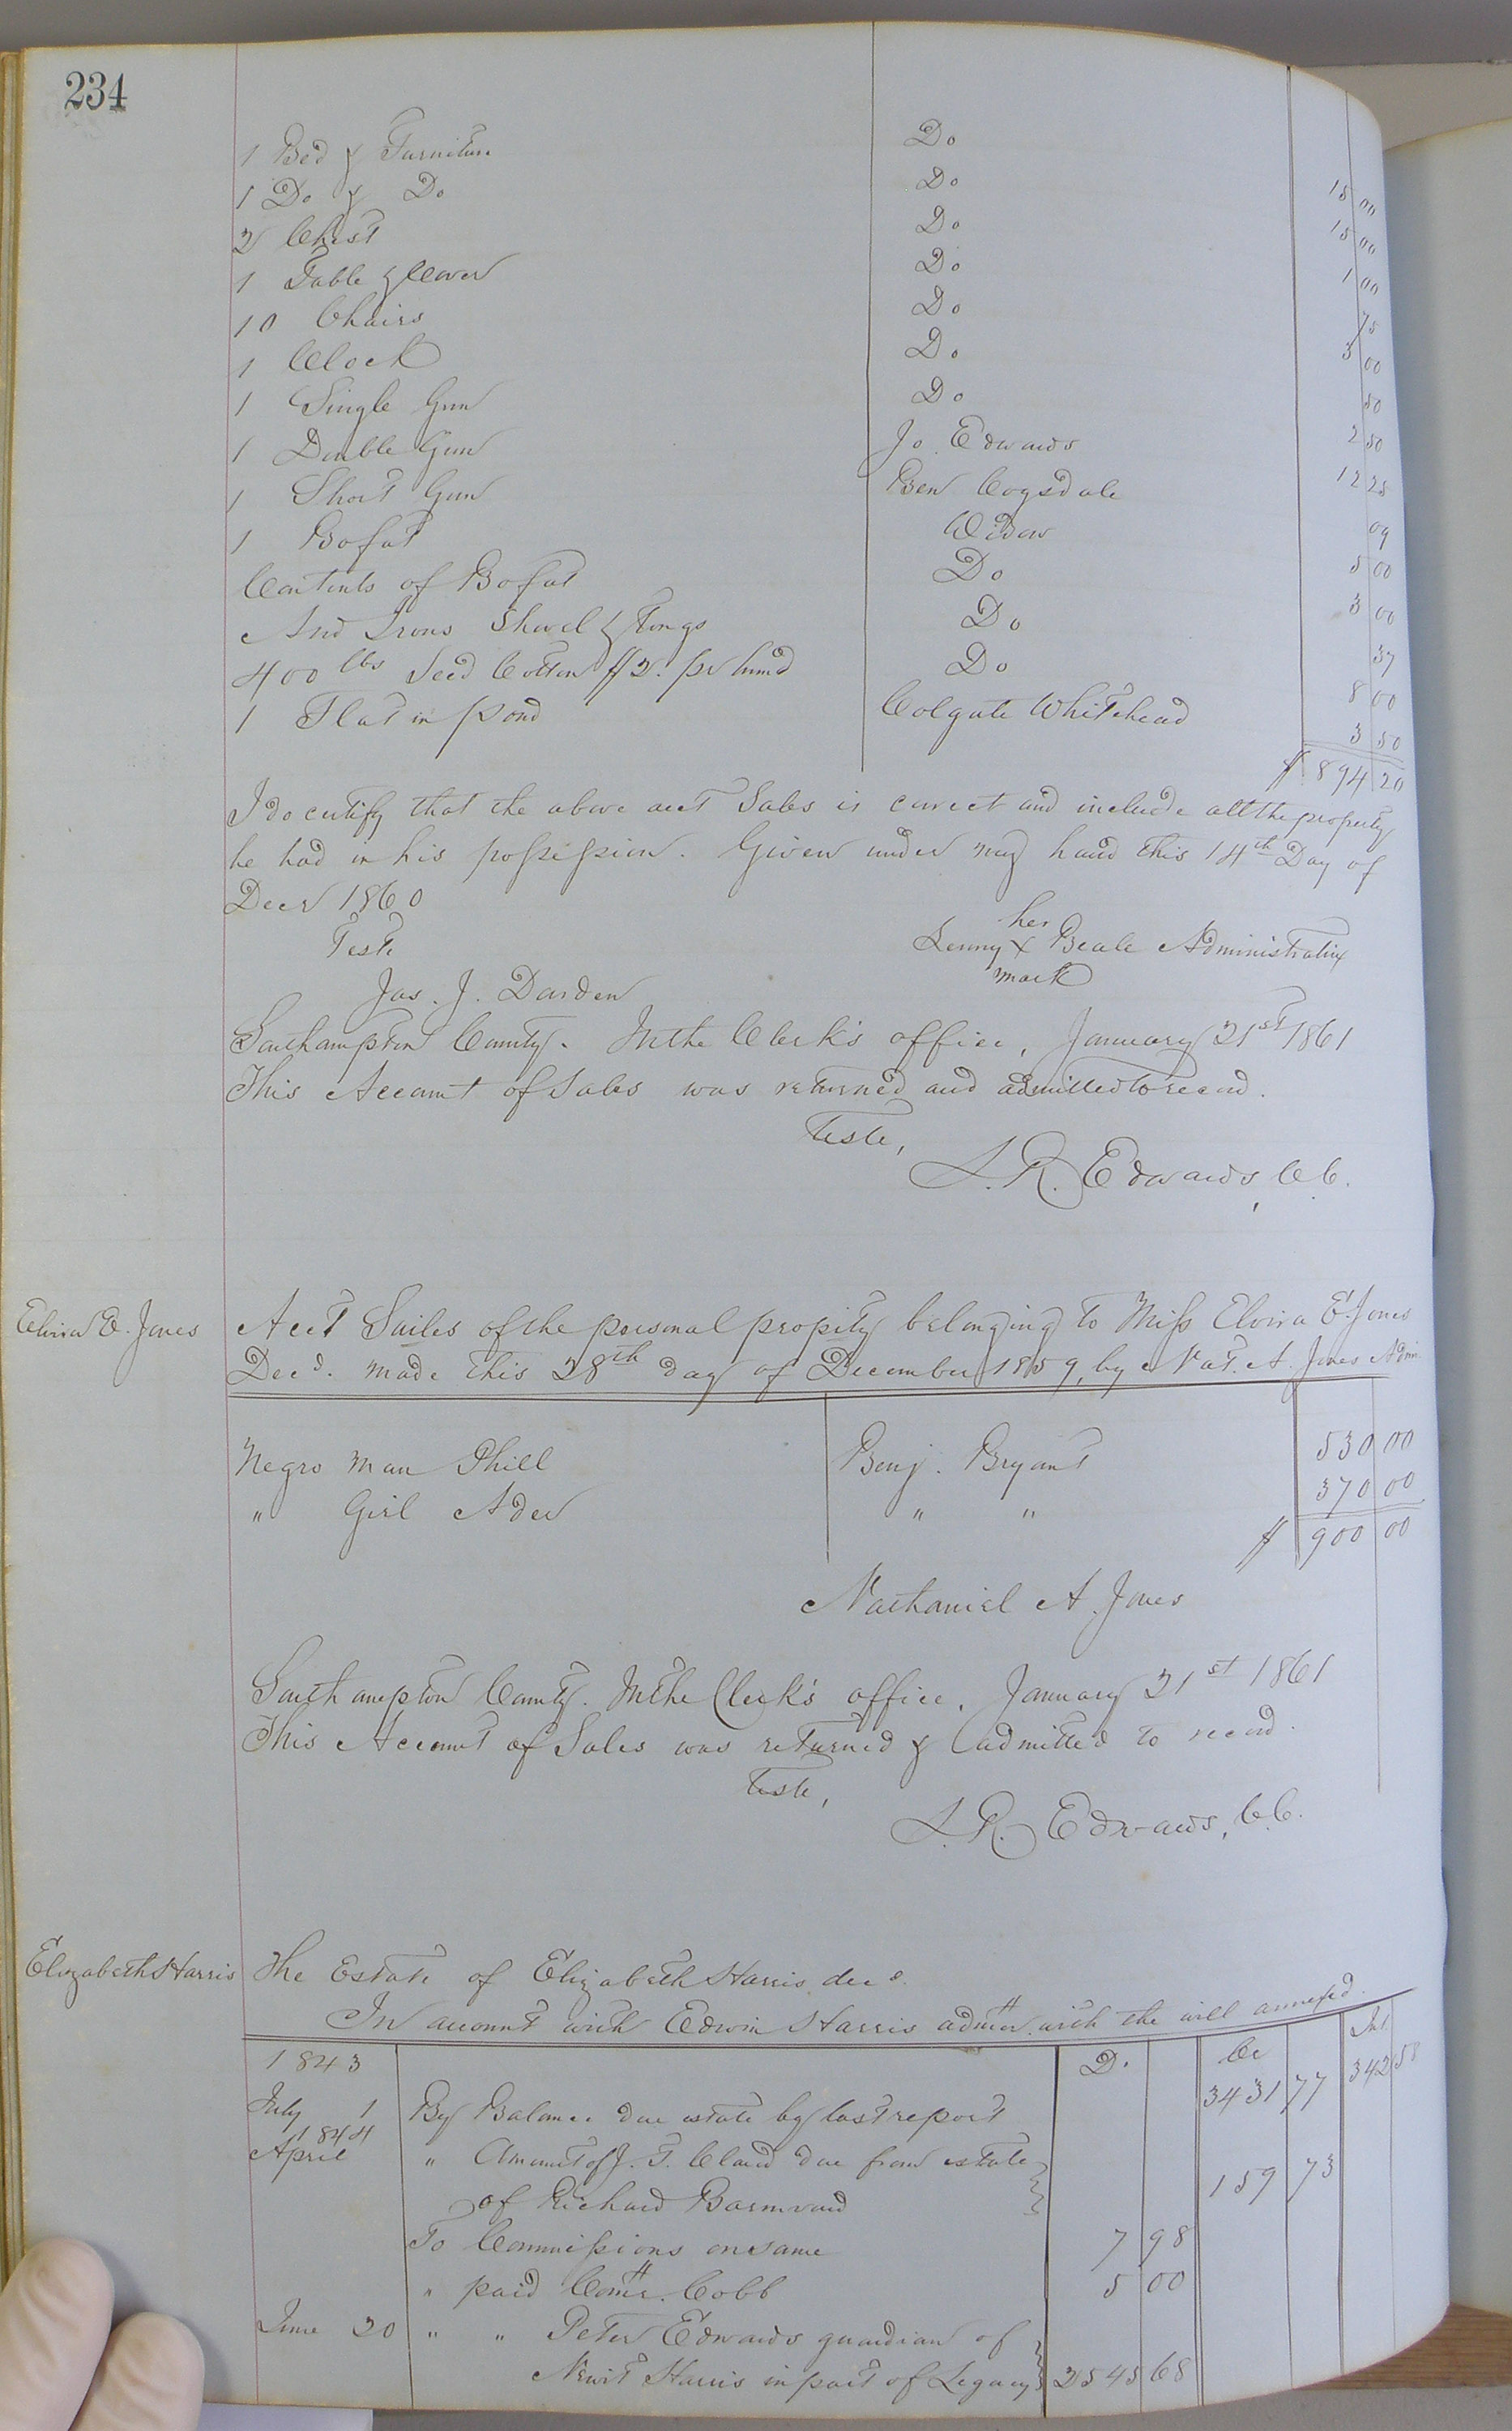 234
1 Bed & Furniture Do 15 00
1 Do & Do Do 15 00
2 Chest Do 1 00
1 Table & Cover Do 75
10 Chairs Do 3 00
1 Clock Do 50
1 Single Gun Do 2 50
1 Double Gun Jo. Edwards 12 25
1 Short Gun Ben Cogsdale 09
1 Bofat Widow 5 00
Contents of Bofat Do 3 00
And Irons Shovel & Tongs Do 37
400 lbs Seed Cotton $2. pr hund Do 8 00
1 Flat in pond Colgate Whitehead 3 50
$ 894 20
I do certify that the above acct Sales is correct and include all the property
he had in his possession. Given under my hand this 14th Day of
Decr 1860
her
Teste Lenny X Beale Administratrix
mark
Jas. J. Darden
Southampton County. In the Clerk's office, January 21st 1861
This Account of Sales was returned and admitted to record.
Teste,
L. R. Edwards, C.C.
Elvira E. Jones
Acct Sailes of the personal propity belonging to Miss Elvira E. Jones
Decd. made this 28th day of December 1859, by Nat. A. Jones Admr
Negro Man Phill Benj. Bryant 530 00
" Girl Ader " " 370 00
$ 900 00
Nathaniel A. Jones
Southampton County. In the Clerk's office, January 21st 1861
This Account of Sales was returned & admitted to record.
Teste,
L. R. Edwards, C.C.
Elizabeth Harris
The Estate of Elizabeth Harris decd.
In account with Edwin Harris admr with the will annexed.
1843 D. Cr Int
July 1 By Balance due estate by last report 3431 77 342 58
1844
April " Amount of J. T. Claud due from estate
of Richard Barnward 159 73
To Commissions on same 7 98
" paid Comr. Cobb 5 00
June 20 " " Peter Edwards guardian of
Newit Harris in part of Legacy 2545 68